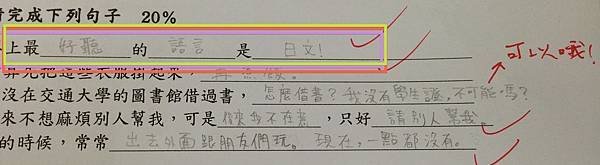 完成下列句子 20%
上最 好聽 的 語言 是 日文!
昇先把這些衣服掛起來, 再
可以哦!
沒在交通大學的圖書館借過書, 怎麼借書?我沒有學生證,不可能嗎?
來不想麻煩別人幫我,可是 我不在意 ,只好 請別人幫我。
的時候,常常 出去外面跟朋友們玩。現在,一點都沒有。